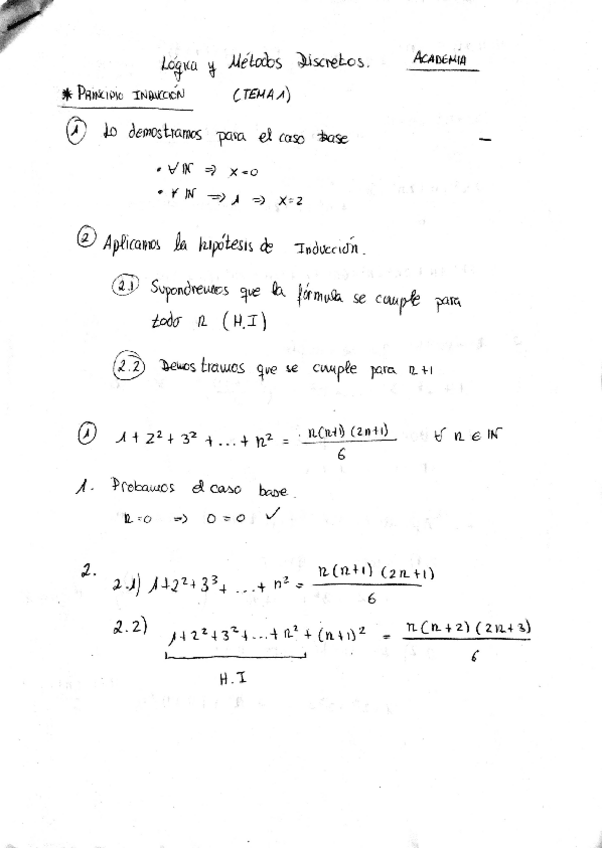 Lógica y Métodos Discretos. ACADEMIA
* PRINCIPIO INDUCCIÓN (TEMA 1)
① Lo demostramos para el caso base
• ∀ ℕ ⇒ x=0
• ∀ ℕ ⇒ 1 ⇒ x=2
② Aplicamos la hipótesis de Inducción.
2.1 Supondremos que la fórmula se cumple para
todo n (H.I)
2.2 Demostramos que se cumple para n+1
① 1 + 2² + 3² + ... + n² = n(n+1)(2n+1) / 6 ∀ n ∈ ℕ
1. Probamos el caso base.
n=0 ⇒ 0=0 ✓
2.
2.1) 1+2²+3³+ ...+ n² = n(n+1)(2n+1) / 6
2.2) 1+2²+3²+...+n²+(n+1)² = n(n+2)(2n+3) / 6
H.I